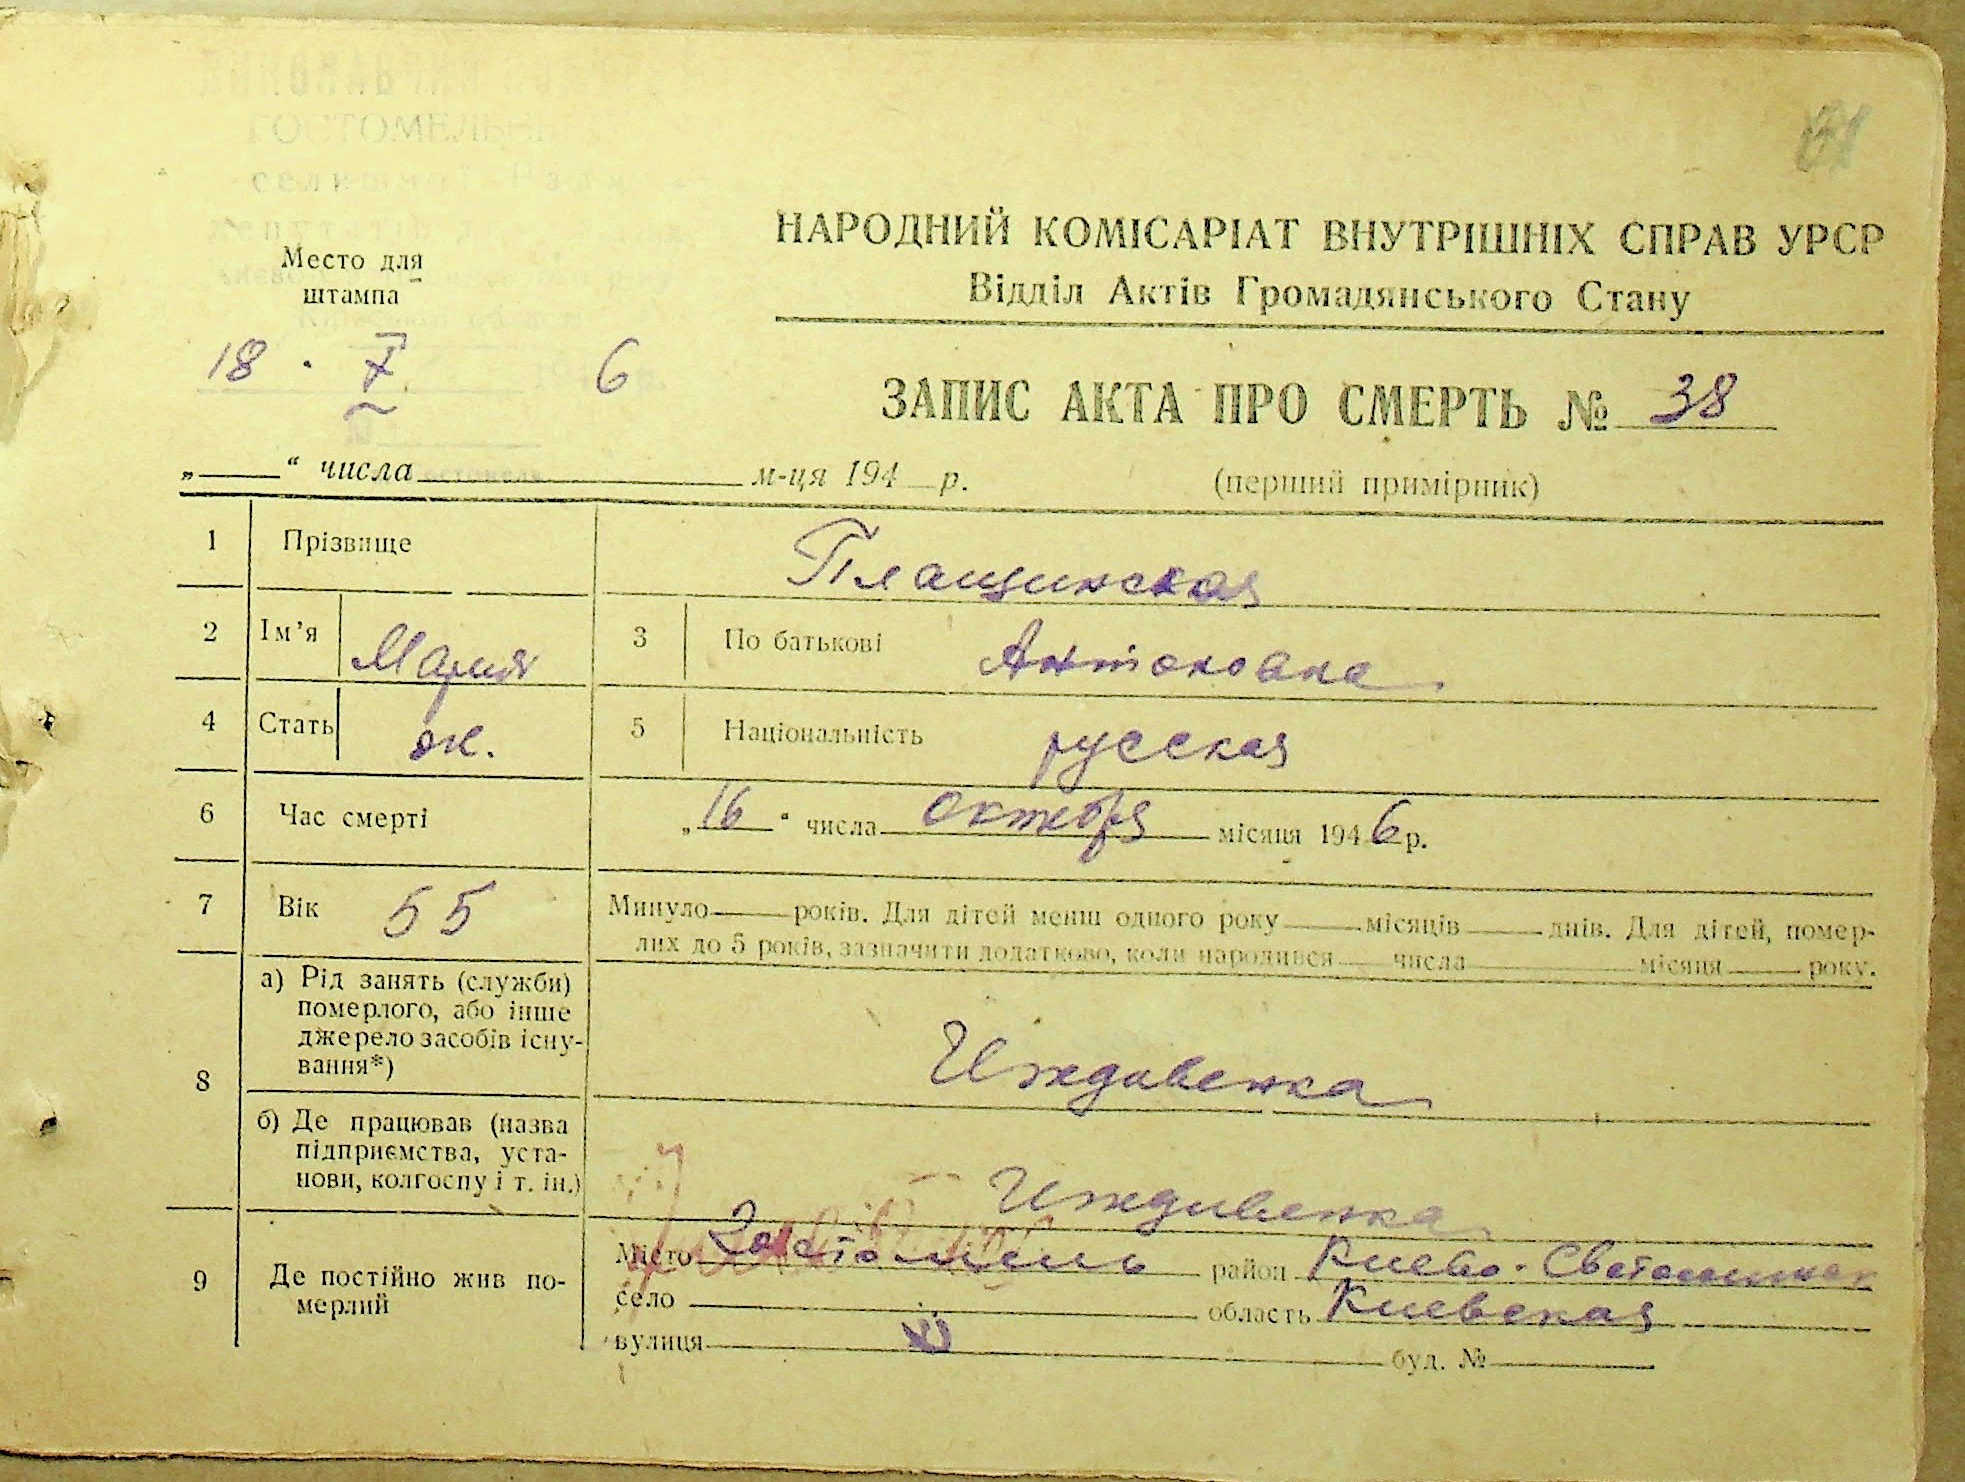 НАРОДНИЙ КОМІСАРІАТ ВНУТРІШНІХ СПРАВ УРСР
Відділ Актів Громадянського Стану
Место для
штампа
18 · X 6
ЗАПИС АКТА ПРО СМЕРТЬ № 38
„ “ числа м-ця 194 р. (перший примірник)
1 Прізвище Плащинская
2 Ім’я Мария 3 По батькові Антоновна
4 Стать ж. 5 Національність русская
6 Час смерті „16“ числа октября місяця 1946 р.
7 Вік 55 Минуло років. Для дітей менш одного року місяців днів. Для дітей, помер-
лих до 5 років, зазначити додатково, коли народився числа місяця року.
8 а) Рід занять (служби)
померлого, або інше
джерело засобів існу-
вання*) Иждивенка
б) Де працював (назва
підприємства, уста-
нови, колгоспу і т. ін.) Иждивенка
9 Де постійно жив по-
мерлий
Місто Гостомель район Киево-Святошинск
село область Киевская
вулиця буд. №